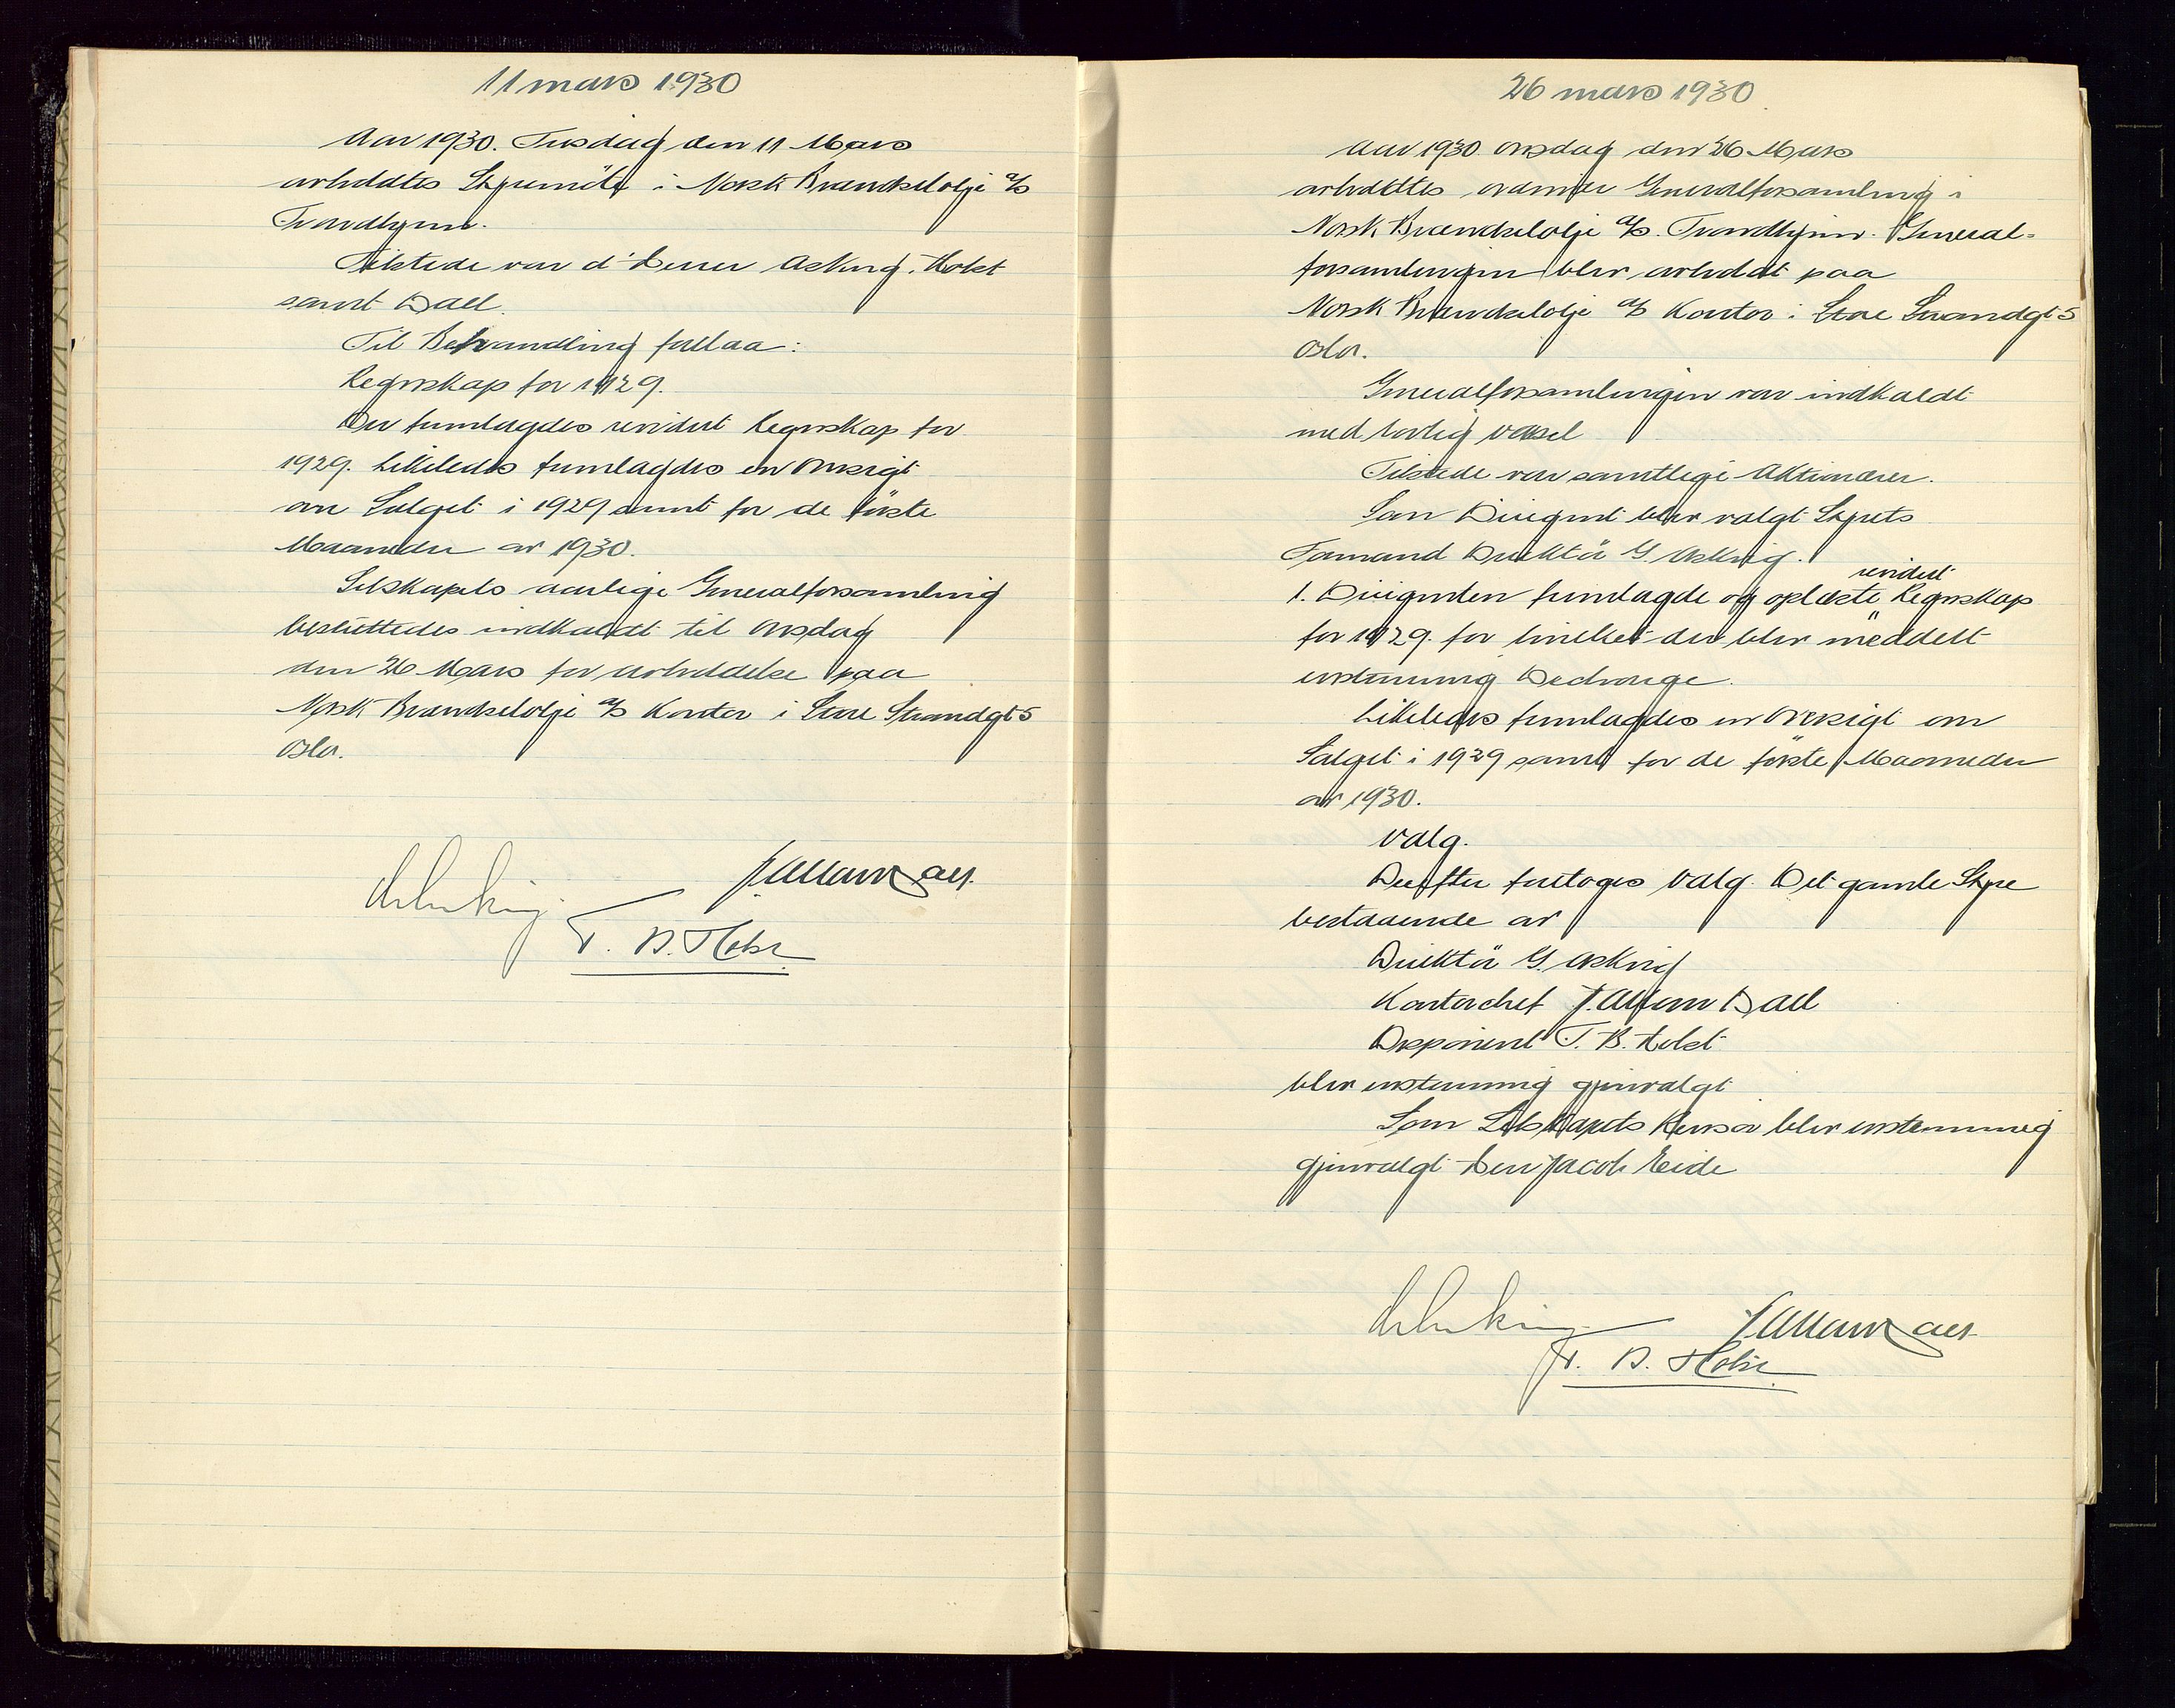 11 mars 1930
Aar 1930. Tirsdag den 11 Mars
avholdtes Styremöte i Norsk Brændselolje A/S
Trondhjem.
Tilstede var d'Herrer Asking, Holst
samt Dall.
Til Behandling forelaa:
Regnskap for 1929.
Der fremlagdes revidert Regnskap for
1929. Likeledes fremlagdes en Oversigt
om Salget i 1929 samt for de förste
Maaneder av 1930.
Selskapets aarlige Generalforsamling
besluttedes indkaldt til Onsdag
den 26 Mars for avholdelse paa
Norsk Brændselolje A/S Kontor i Store Strandgt 5
Oslo.
J. Allum Dall
T. B. Holst
26 mars 1930
Aar 1930. Onsdag den 26 Mars
avholdtes ordinær Generalforsamling i
Norsk Brændselolje A/S. Trondhjem. General-
forsamlingen blev avholdt paa
Norsk Brændselolje A/S Kontor i Store Strandgt 5
Oslo.
Generalforsamlingen var indkaldt
med lovlig varsel
Tilstede var samtlige Aktionærer.
Som Dirigent blev valgt Styrets
Formand Direktör G. Asking.
revidert
1. Dirigenten fremlagde og oplæste Regnskap
for 1929. for hvilket der blev meddelt
enstemmig Decharge.
Likeledes fremlagdes en Oversigt om
Salget i 1929 samt for de förste Maaneder
av 1930.
Valg.
Derefter foretoges Valg. Det gamle Styre
bestaaende av
Direktör G. Asking
Kontorchef J. Allum Dall
Disponent T. B. Holst
blev enstemmig gjenvalgt
Som Selskapets Revisor blev enstemmig
gjenvalgt Herr Jacob Eide
J. Allum Dall
T. B. Holst